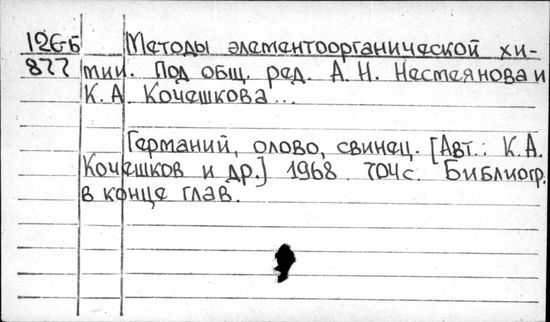 126-Б Методы элементоорганической хи-
877 мии. Под общ. ред. А. Н. Несмеянова и
К. А. Кочешкова...
Германий, олово, свинец. [Авт.: К. А.
Кочешков и др.] 1968. 704 с. Библиогр.
в конце глав.